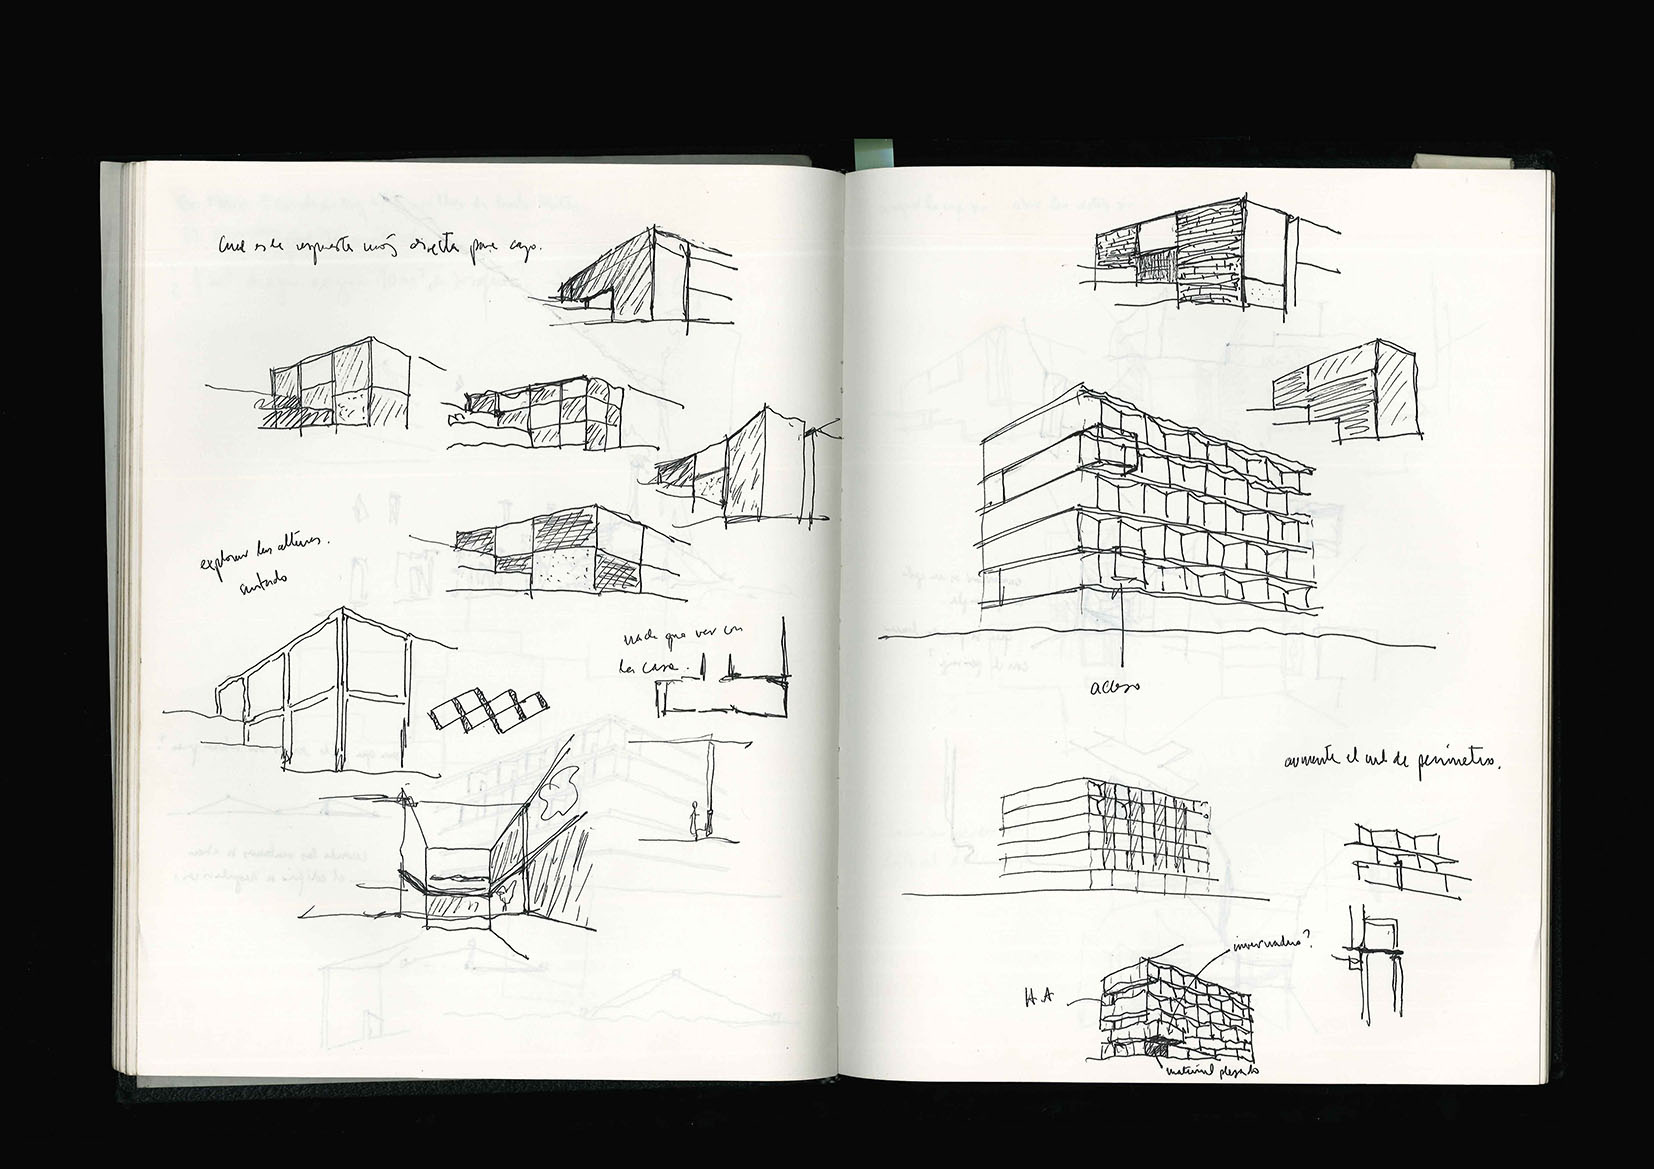 cual es la respuesta más directa para cazo.
explorar las alturas.
nada que ver con
la casa.
acceso
aumente el ml de perímetro.
invernadero?
H.A
material plegado